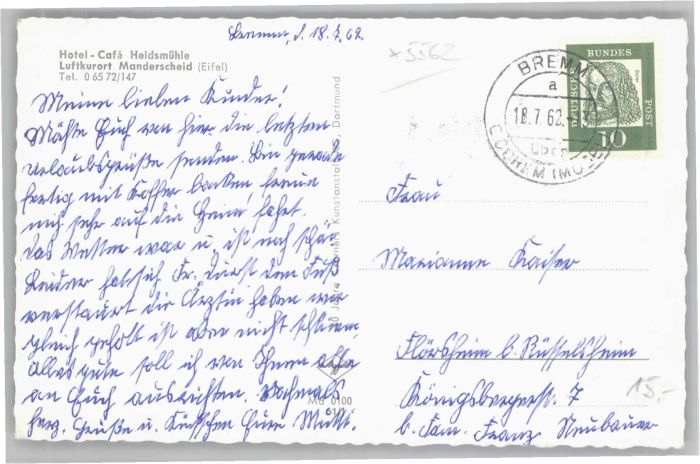 Bremm, d. 18.7.62.
Hotel - Café Heidsmühle
Luftkurort Manderscheid (Eifel)
Tel. 0 65 72/147
Meine lieben Kinder!
Möchte Euch von hier die letzten
Urlaubsgrüße senden. Bin gerade
fertig mit Koffer packen, freue
mich sehr auf die Heimfahrt.
Das Wetter war u. ist noch schön
Leider hat sich Fr. den Fuß
verstaucht die Ärztin haben wir
gleich geholt ist aber nicht schlimm,
Alles gute soll ich von Ihnen alle
an Euch ausrichten. Nochmals
herz. Grüße u. Küßchen Eure Mutti.
Kunstanstalten, Dortmund
Md 0100
*5562
BREMM
a
18.7.62
über
COCHEM (MOSEL)
DEUTSCHE BUNDESPOST
10
Frau
Marianne Kaiser
Flörsheim b. Rüsselsheim
Königsbergerst. 7
b. Fam. Franz Neubauer
15.-